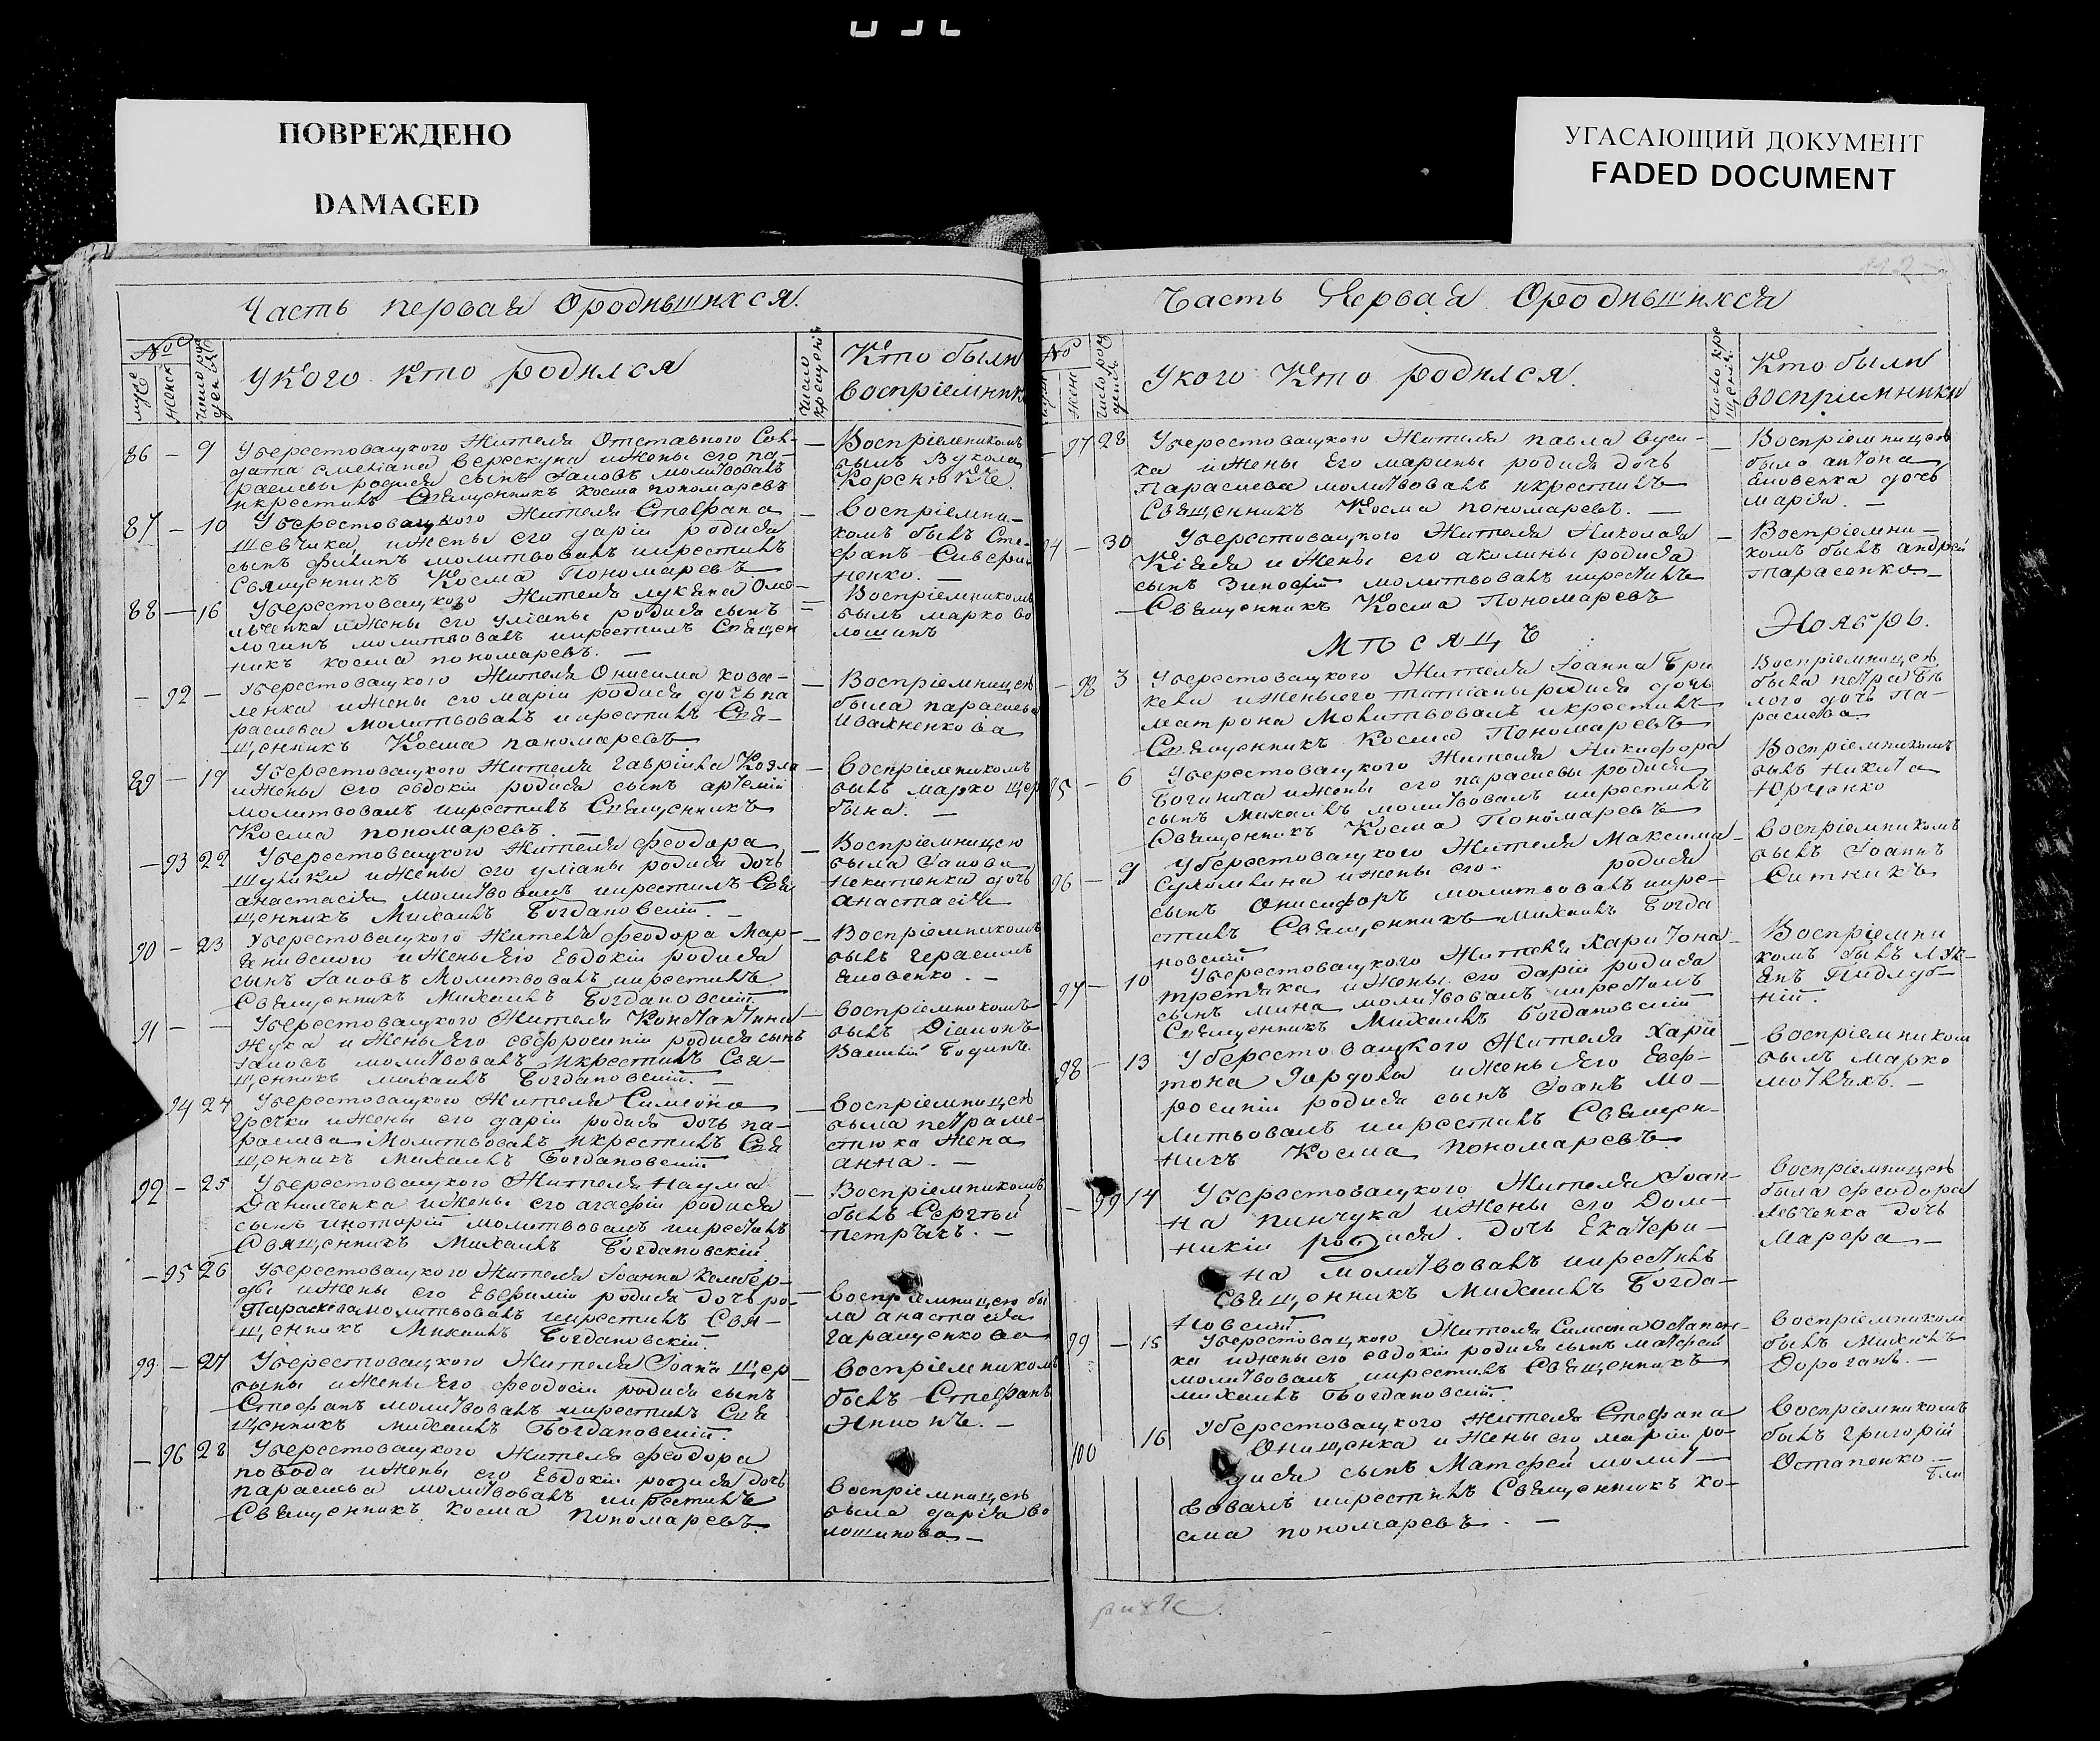 ПОВРЕЖДЕНО
DAMAGED
УГАСАЮЩИЙ ДОКУМЕНТ
FADED DOCUMENT
Часть первая Ородившихся.
№
муж
женск
число
У кого кто родился
число крещенія
Кто были
воспріемник
86 — 9 Уберестовацкого Жителя Отставного Сол-
дата Верескуна ижены его па-
раскевы родися сынъ Іаковъ молитвовалъ
икрестилъ Священникъ Косма пономаревъ
— Воспріемникомъ
былъ Вукола
87 — 10 Уберестовацкого Жителя Стефана
Шевчика ижены его дарiи родися
сынъ филипъ молитвовалъ икрестилъ
Священникъ Косма Пономаревъ
— Воспріемни-
комъ былъ Сте-
фанъ Сивери-
ненко. —
88 — 16 Уберестовацкого Жителя лукiана Оме-
льченка ижены его улiаны родися сынъ
логинъ молитвовалъ икрестилъ Священ
никъ косма пономаревъ. —
— Воспріемникомъ
былъ марко во
лошинъ
— 92 — Уберестовацкого Жителя Онисима кова-
ленка ижены его марiи родися дочь па
раскева молитвовалъ икрестилъ Свя-
щенникъ Косма пономаревъ
— Воспріемницею
была параскева
Ивахненкова
89 — 19 Уберестовацкого Жителя гаврiила Козла
ижены его евдокiи родися сынъ артемiй
молитвовалъ икрестилъ Священникъ
Косма пономаревъ. —
— Воспріемникомъ
былъ марко щер
бина. —
— 93 22 Уберестовацкого Жителя феодора
Шулики ижены его улiаны родися дочь
анастасiя молитвовалъ икрестилъ Свя
щенникъ Михаилъ Богдановскiй. —
— Воспріемницею
была Іакова
Некитенка дочь
анастасiя
90 — 23 Уберестовацкого Жителя феодора Мар-
ижены его Евдокiи родися
сынъ Іаковъ Молитвовалъ икрестилъ
Священникъ Михаилъ Богдановскiй
— Воспріемникомъ
былъ герасимъ
яковенко. —
91 — — Уберестовацкого Жителя Константина
Жука ижены его евфросинiи родися сынъ
Іаковъ молитвовалъ икрестилъ Свя-
щенникъ михаилъ Богдановскiй. —
— Воспріемникомъ
былъ Дiаконъ
Василiй Бодинъ.
94 24 Уберестовацкого Жителя Симеона
Гречки ижены его дарiи родися дочь па-
раскева Молитвовалъ икрестилъ Свя
щенникъ Михаилъ Богдановскiй
— Воспріемницею
была петра ме-
стюка жена
анна. —
92 — 25 Уберестовацкого Жителя наума
Данильченка ижены его агафiи родися
сынъ молитвовалъ икрестилъ
Священникъ Михаилъ Богдановскiй
— Воспріемникомъ
былъ Сергѣй
петрычъ. —
— 95 26 Уберестовацкого Жителя Іоанна Камбер-
ды ижены его Евфимiи родися дочь ро-
Параскева молитвовалъ икрестилъ Свя-
щенникъ Михаилъ Богдановскiй.
— Воспріемницею бы
ла анастасiя
гаращенкова
99 — 27 Уберестовацкого Жителя Іоана щер
бины ижены его феодосiи родися сынъ
Стефанъ молитвовалъ икрестилъ Свя
щенникъ михаилъ Богдановскiй.
— Воспріемникомъ
былъ Стефанъ
— 96 28 Уберестовацкого Жителя феодора
повода ижены его Евдокiи родися дочь
параскева молитвовалъ икрестилъ
Священникъ косма пономаревъ
Воспріемницею
была дарiя во
лошинова. —
Часть Первая Ородившихся
№
жен
У кого Кто родился.
Кто были
воспріемники
— 97 28 Уберестовацкого Жителя павла
ка ижены Его марины родися дочь
Параскева молитвовалъ икрестилъ
Священникъ Косма пономаревъ. —
— Воспріемницею
была антона
яковенка дочь
марiя. —
94 — 30 Уберестовацкого Жителя Николая
Кiяся ижены его акилины родися
сынъ Зиновiй молитвовалъ икрестилъ
Священникъ Косма Пономаревъ
— Воспріемни-
комъ былъ андрей
тарасенко —
Мѣсяцъ Ноябрь.
— 98 3 Уберестовацкого Жителя Іоанна Бри
ижены его татiаны родися дочь
матрона Молитвовалъ икрестилъ
Священникъ Косма Пономаревъ
Воспріемницею
была петра бѣ
лого дочь Па-
раскева
95 — 6 Уберестовацкого Жителя Никифора
ижены его параскевы родися
сынъ Михаилъ молитвовалъ икрестилъ
Священникъ Косма Пономаревъ
Воспріемникомъ
былъ никита
Юрченко
96 — 9 Уберестовацкого Жителя Максима
Сухомлина ижены его — родися
сынъ Онисифоръ молитвовалъ икре-
стилъ Священникъ михаилъ Богда
новскiй
— Воспріемникомъ
былъ Іоаннъ
Ситникъ
97 — 10 Уберестовацкого Жителя Харитона
третяка ижены его дарiи родися
сынъ мина молитвовалъ икрестилъ
Священникъ Михаилъ Богдановскiй
— Воспріемни
комъ былъ лук-
янъ Пидлуб-
нiй.
98 — 13 Уберестовацкого Жителя Хари
тона Гордола ижены его Евф-
росинiи родися сынъ Іоанъ мо-
литвовалъ икрестилъ Священ-
никъ Косма пономаревъ
— Воспріемником
былъ марко
—
— 99 14 Уберестовацкого Жителя Іоан-
на пинчука ижены его Дом-
никiи родися дочь Екатери-
на молитвовалъ икрестилъ
Священникъ Михаилъ Богда-
новскiй
Воспріемницею
была феодора
левченка дочь
Марфа —
99 — 15 Уберестовацкого Жителя Симеона Остапен-
ка ижены его евдокiи родися сынъ матфей
молитвовалъ икрестилъ Священникъ
михаилъ Богдановскiй
Воспріемником
былъ михаилъ
Дороганъ. —
100 16 Уберестовацкого Жителя Стефана
Онищенка ижены его марiи ро-
дися сынъ Матфей молит-
вовалъ икрестилъ Священникъ ко-
сма пономаревъ. —
Воспріемникомъ
былъ григорiй
Остапенко —